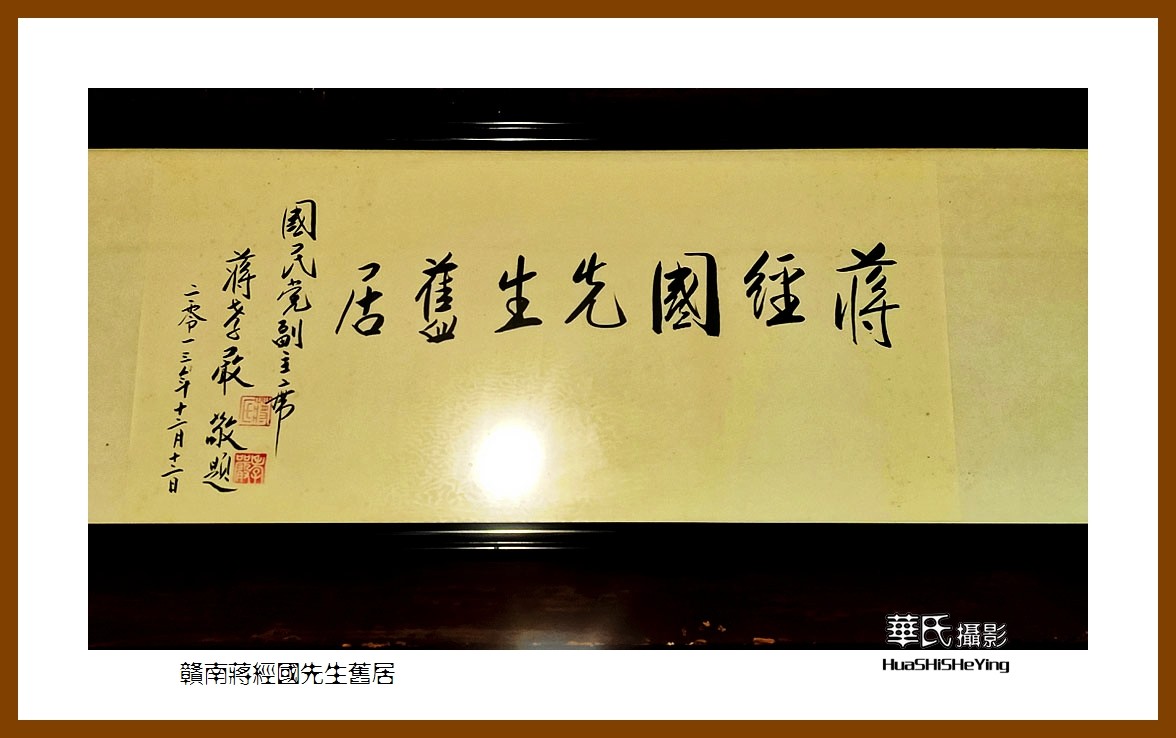 蔣經國先生舊居
國民党副主席
蔣孝嚴 敬題
二零一三年十二月十二日
華氏攝影
HuaSHiSHeYing
贛南蔣經國先生舊居